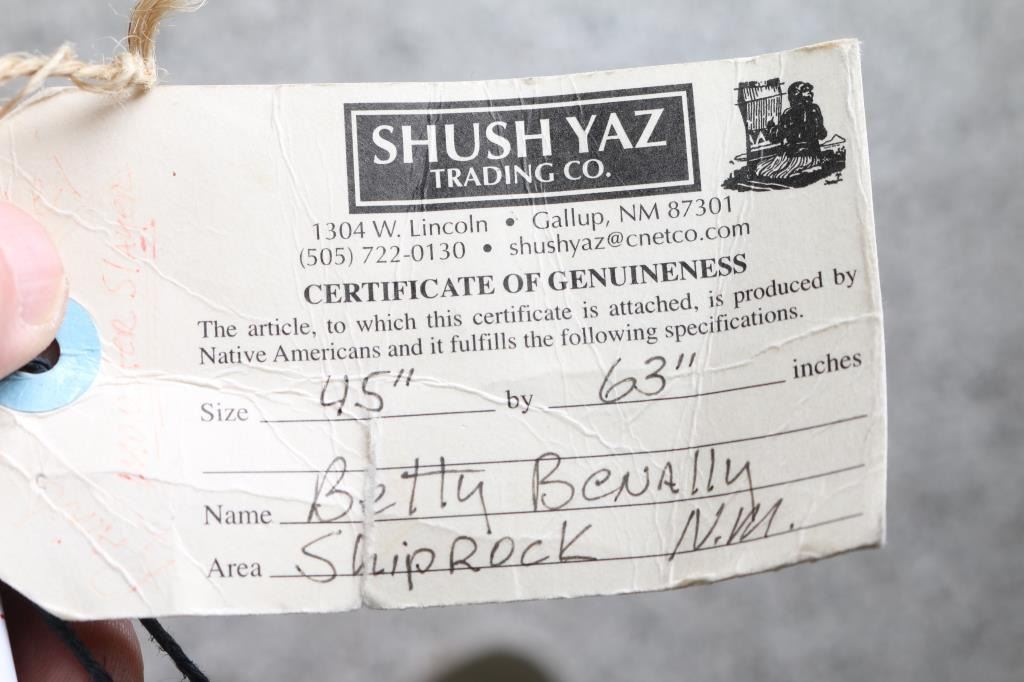 SHUSH YAZ
TRADING CO.
1304 W. Lincoln • Gallup, NM 87301
(505) 722-0130 • shushyaz@cnetco.com
CERTIFICATE OF GENUINENESS
The article, to which this certificate is attached, is produced by
Native Americans and it fulfills the following specifications.
Size 45" by 63" inches
Name Betty Benally
Area ShipRock N.M.